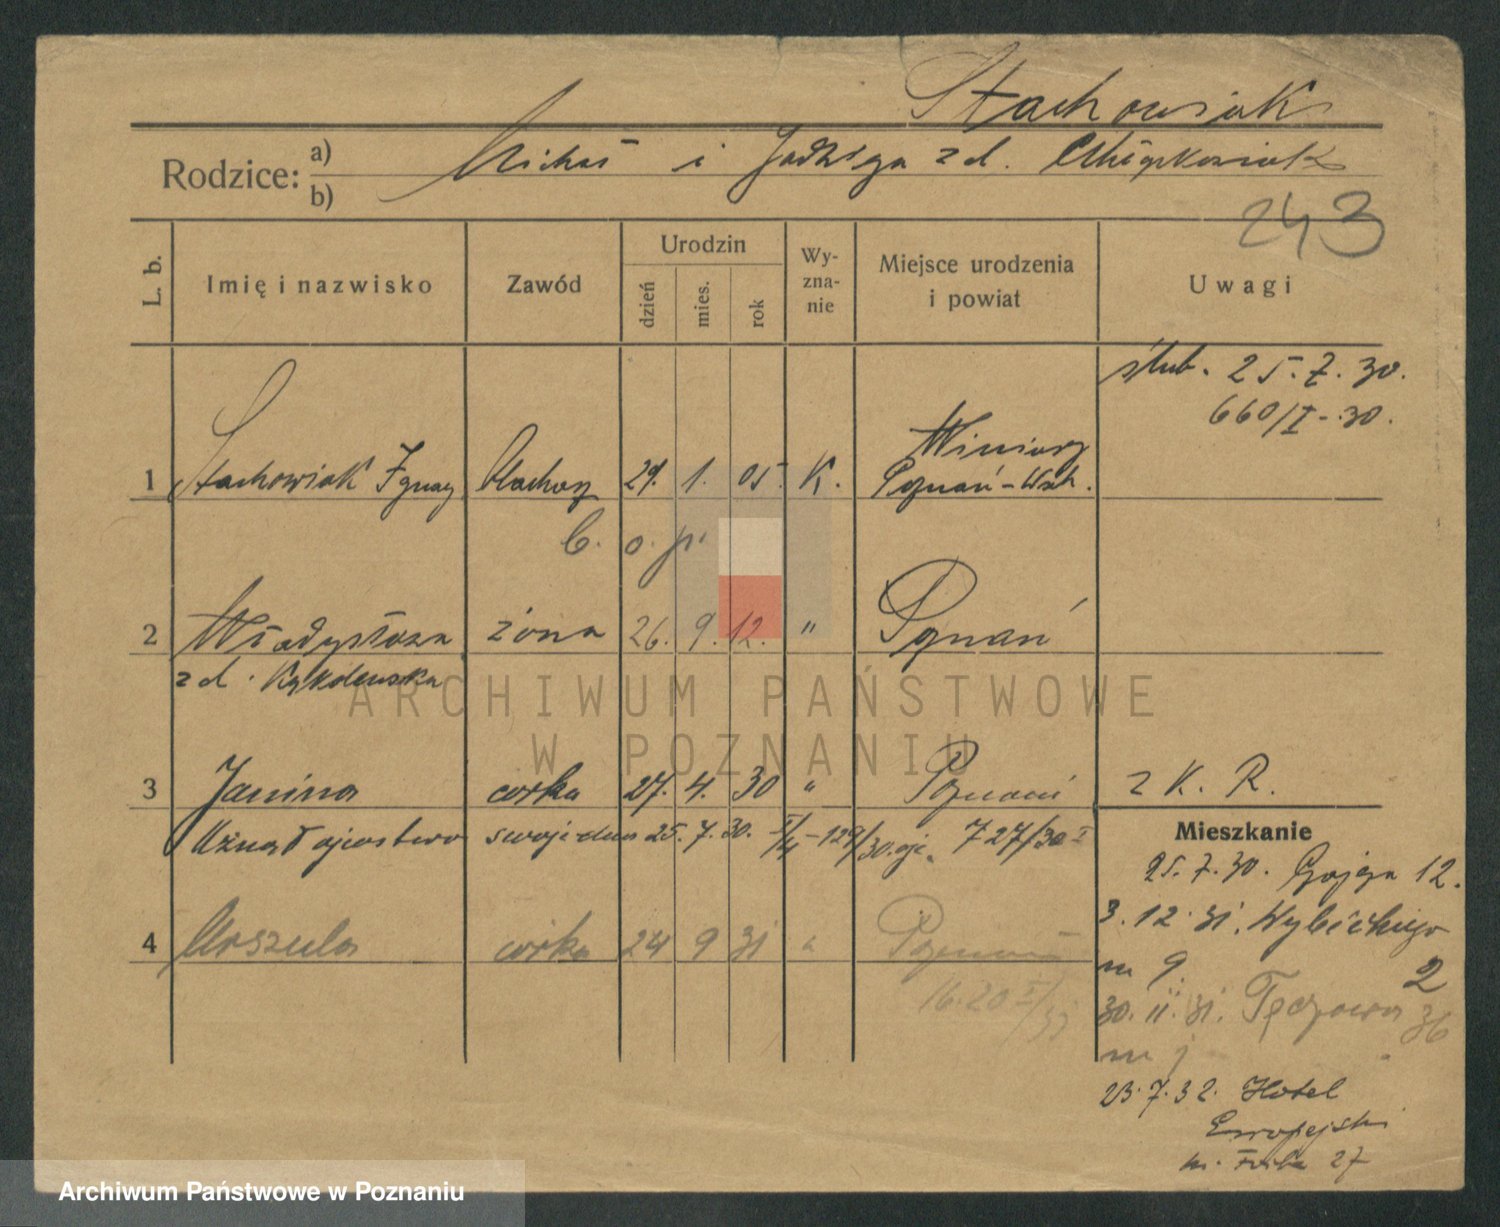 Stachowiak
Rodzice: a) b) Michał i Jadwiga z d.
243
L. b. Imię i nazwisko Zawód Urodzin dzień mies. rok Wyznanie Miejsce urodzenia i powiat Uwagi
ślub. 25.7.30.
660/I-30.
Winiary
1 Stachowiak Ignacy blacharz 29. 1. 05. K. Poznań-Wsch.
b. o. p.
2 Władysława żona 26. 9. 12. " Poznań
z d.
ARCHIWUM PAŃSTWOWE
W POZNANIU
3 Janina córka 27. 4. 30 " Poznań z K. R.
Uznał ojcostwo swoje dnia 25.7.30. 727/30
Mieszkanie
25.7.30. 12.
4 Urszula córka 24 9 31 " Poznań
3.12.31. Wybickiego
m 9. 2
30.11.31. Tęczowa 36
16.20
m
23.7.32. Hotel
Europejski
27
Archiwum Państwowe w Poznaniu